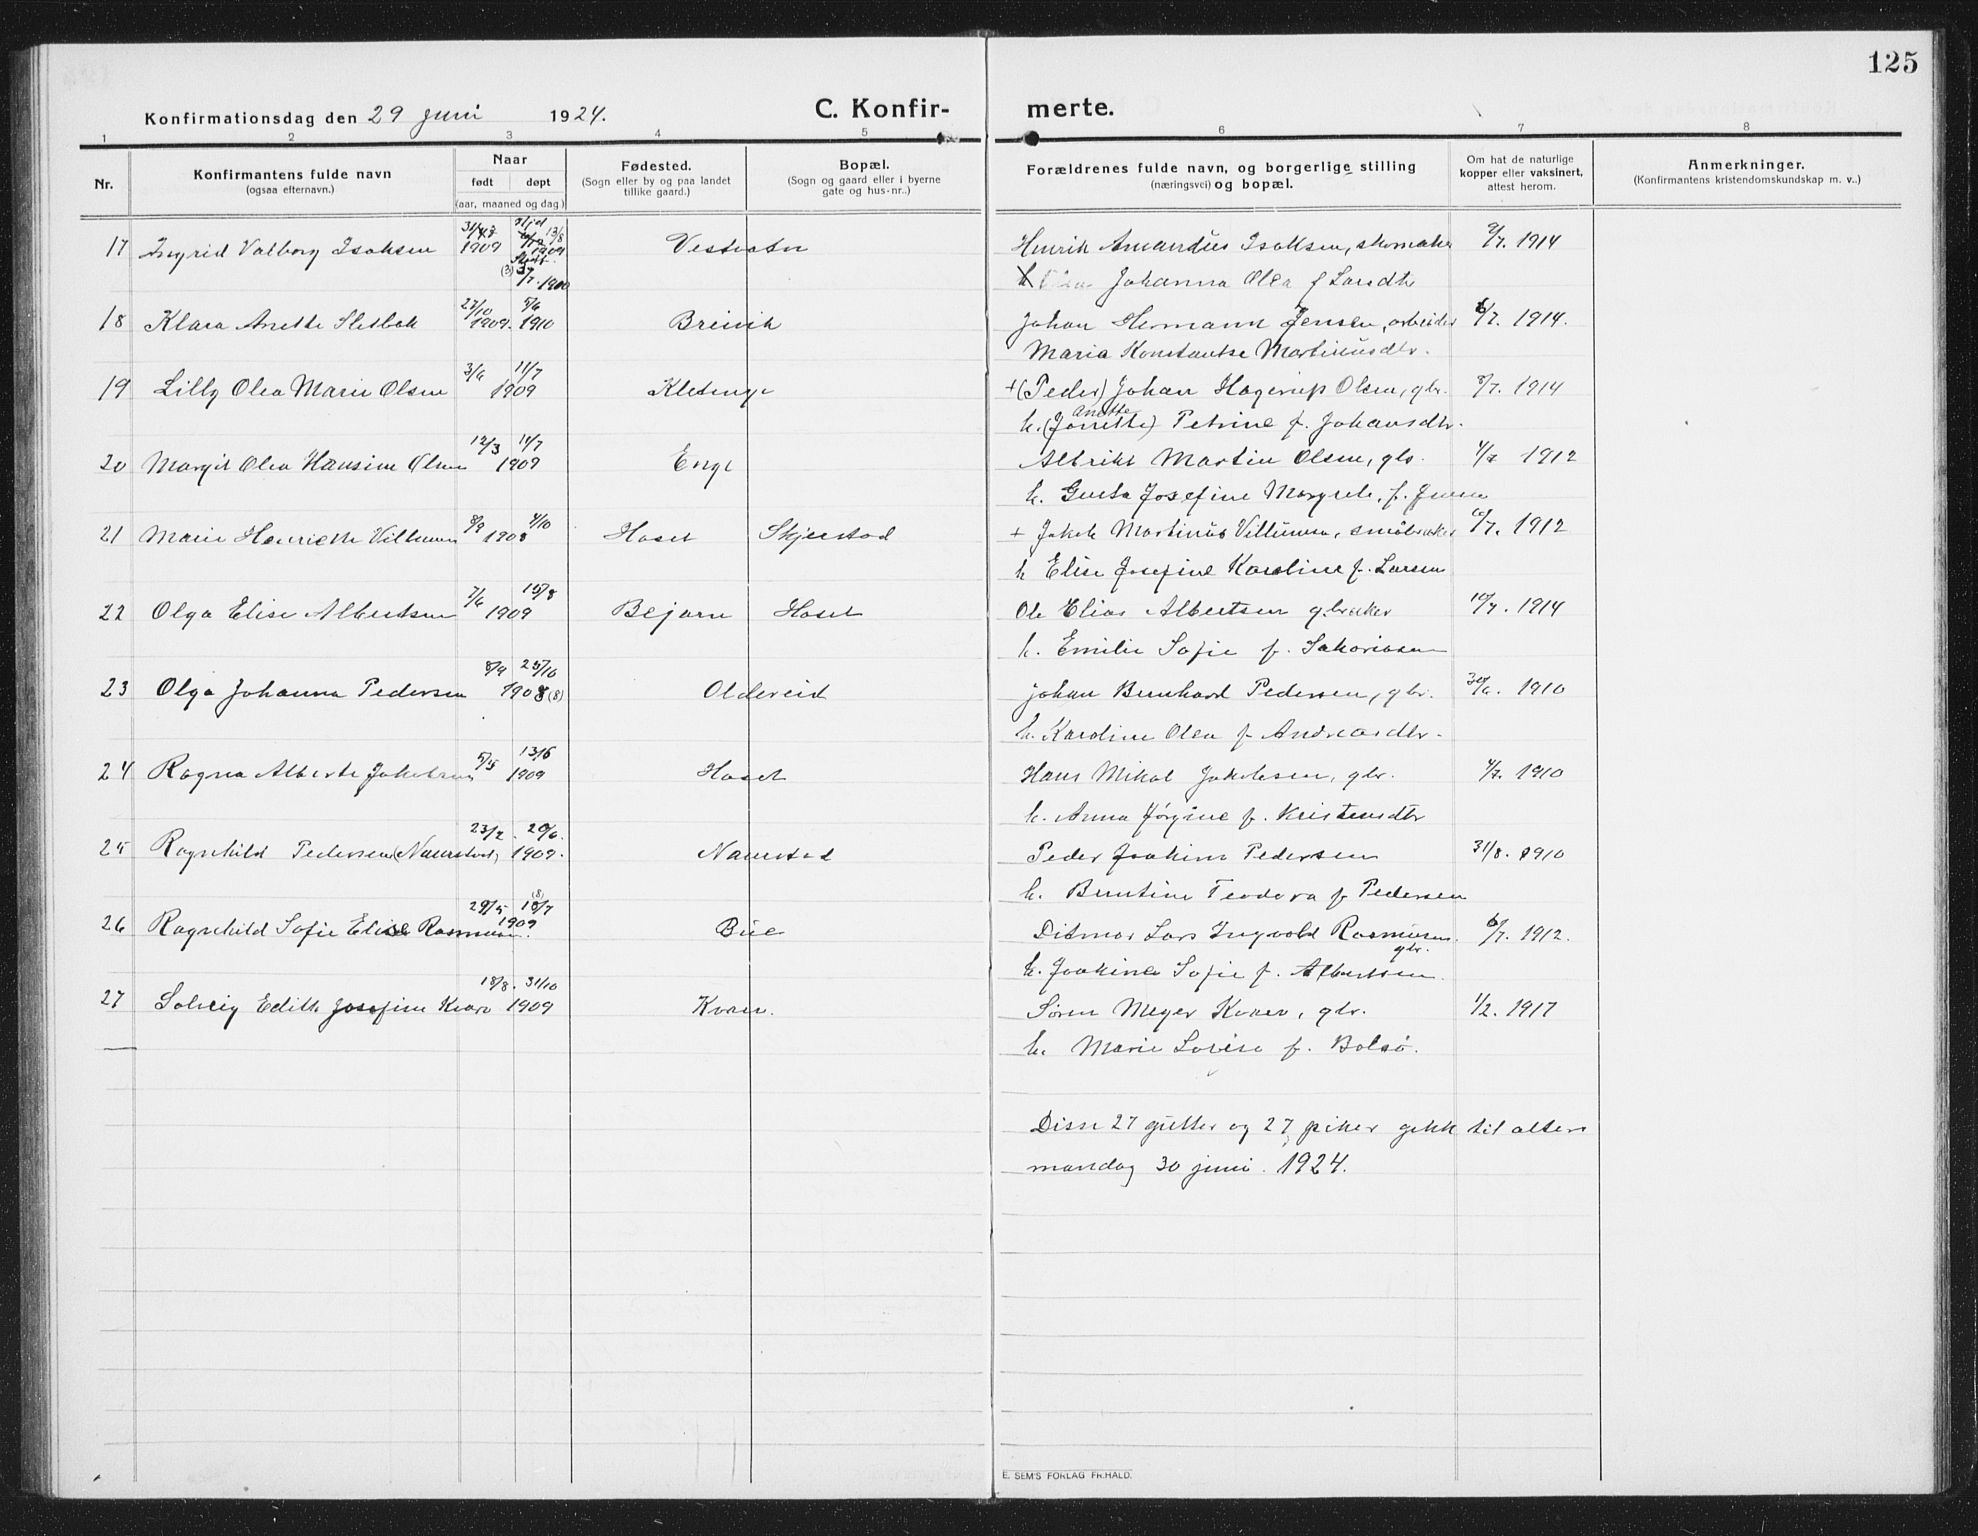 125
Konfirmationsdag den 29 juni 1924.
C. Konfirmerte.
1 2 3 4 5 6 7 8
Nr.
Konfirmantens fulde navn
(ogsaa efternavn.)
Naar
født døpt
(aar, maaned og dag)
Fødested.
(Sogn eller by og paa landet
tillike gaard.)
Bopæl.
(Sogn og gaard eller i byerne
gate og hus-nr..)
Forældrenes fulde navn, og borgerlige stilling
(næringsvei) og bopæl.
Om hat de naturlige
kopper eller vaksinert,
attest herom.
Anmerkninger.
(Konfirmantens kristendomskundskap m. v..)
17 Ingrid Valborg Isaksen 1909 Vestvatn Henrik Amandus Isaksen, skomaker 9/7. 1914
Johanna Olea f Larsdtr
18 Klara Anette Sletbak 27/10 1909. 5/6 1910 Breivik Johan Hermann Jensen, arbeider 6/7. 1914.
Maria Konstantse Martinusdtr.
19 Lilly Olea Marie Olsen 3/6 11/7 1909 Kletinge +(Peder) Johan Hagerup Olsen, gbr. 8/7. 1914
h. (Jonette) Anette Petrine f. Johansdtr.
20 Margit Olea Hansine Olsen 12/3 11/7 1909 Enge Albrikt Martin Olsen, gbr. 4/7 1912
h. Gusta Josefine Margrete, f. Jensen
21 Marie Henriette Villumsen 8/9 4/10 1908 Hoset Skjerstad + Jakob Martinus Villumsen, småbruker 6/7. 1912
h Elise Josefine Karoline f. Larsen
22 Olga Elise Albertsen 7/6 15/8 1909 Bejarn Hoset Ole Elias Albertsen gbruker 10/7. 1914
h. Emilie Sofie f. Sakariasen
23 Olga Johanna Pedersen 8/9 25/10 1908 (8) Oldereid Johan Bernhard Pedersen, gbr. 30/6. 1910
h. Karoline Olea f Andreasdtr.
24 Ragna Alberte Jakobsen 5/5 13/6 1909 Hoset Hans Mikal Jakobsen, gbr. 4/7. 1910
h. Anna Jørgine f. Kristensdtr
25 Ragnhild Pedersen (Naurstad) 23/2. 20/6. 1909. Naurstad Peder Joakim Pedersen 31/8. 1910
h. Berntine Teodora f Pedersen
26 Ragnhild Sofie Elise Rasmussen 29/5 18/7 (8) 1909. Bue Ditmar Lars Ingvald Rasmussen gbr. 6/7. 1912.
h. Joakine Sofie f. Albertsen.
27 Solveig Edith Josefine Kvæn 18/8. 31/10 1909 Kvæn. Søren Meyer Kvæn, gbr. 1/2. 1917
h. Marie Lovise f. Bolsø.
Disse 27 gutter og 27 piker gikk til alters
mandag 30 juni. 1924.
E. SEM'S FORLAG FR.HALD.